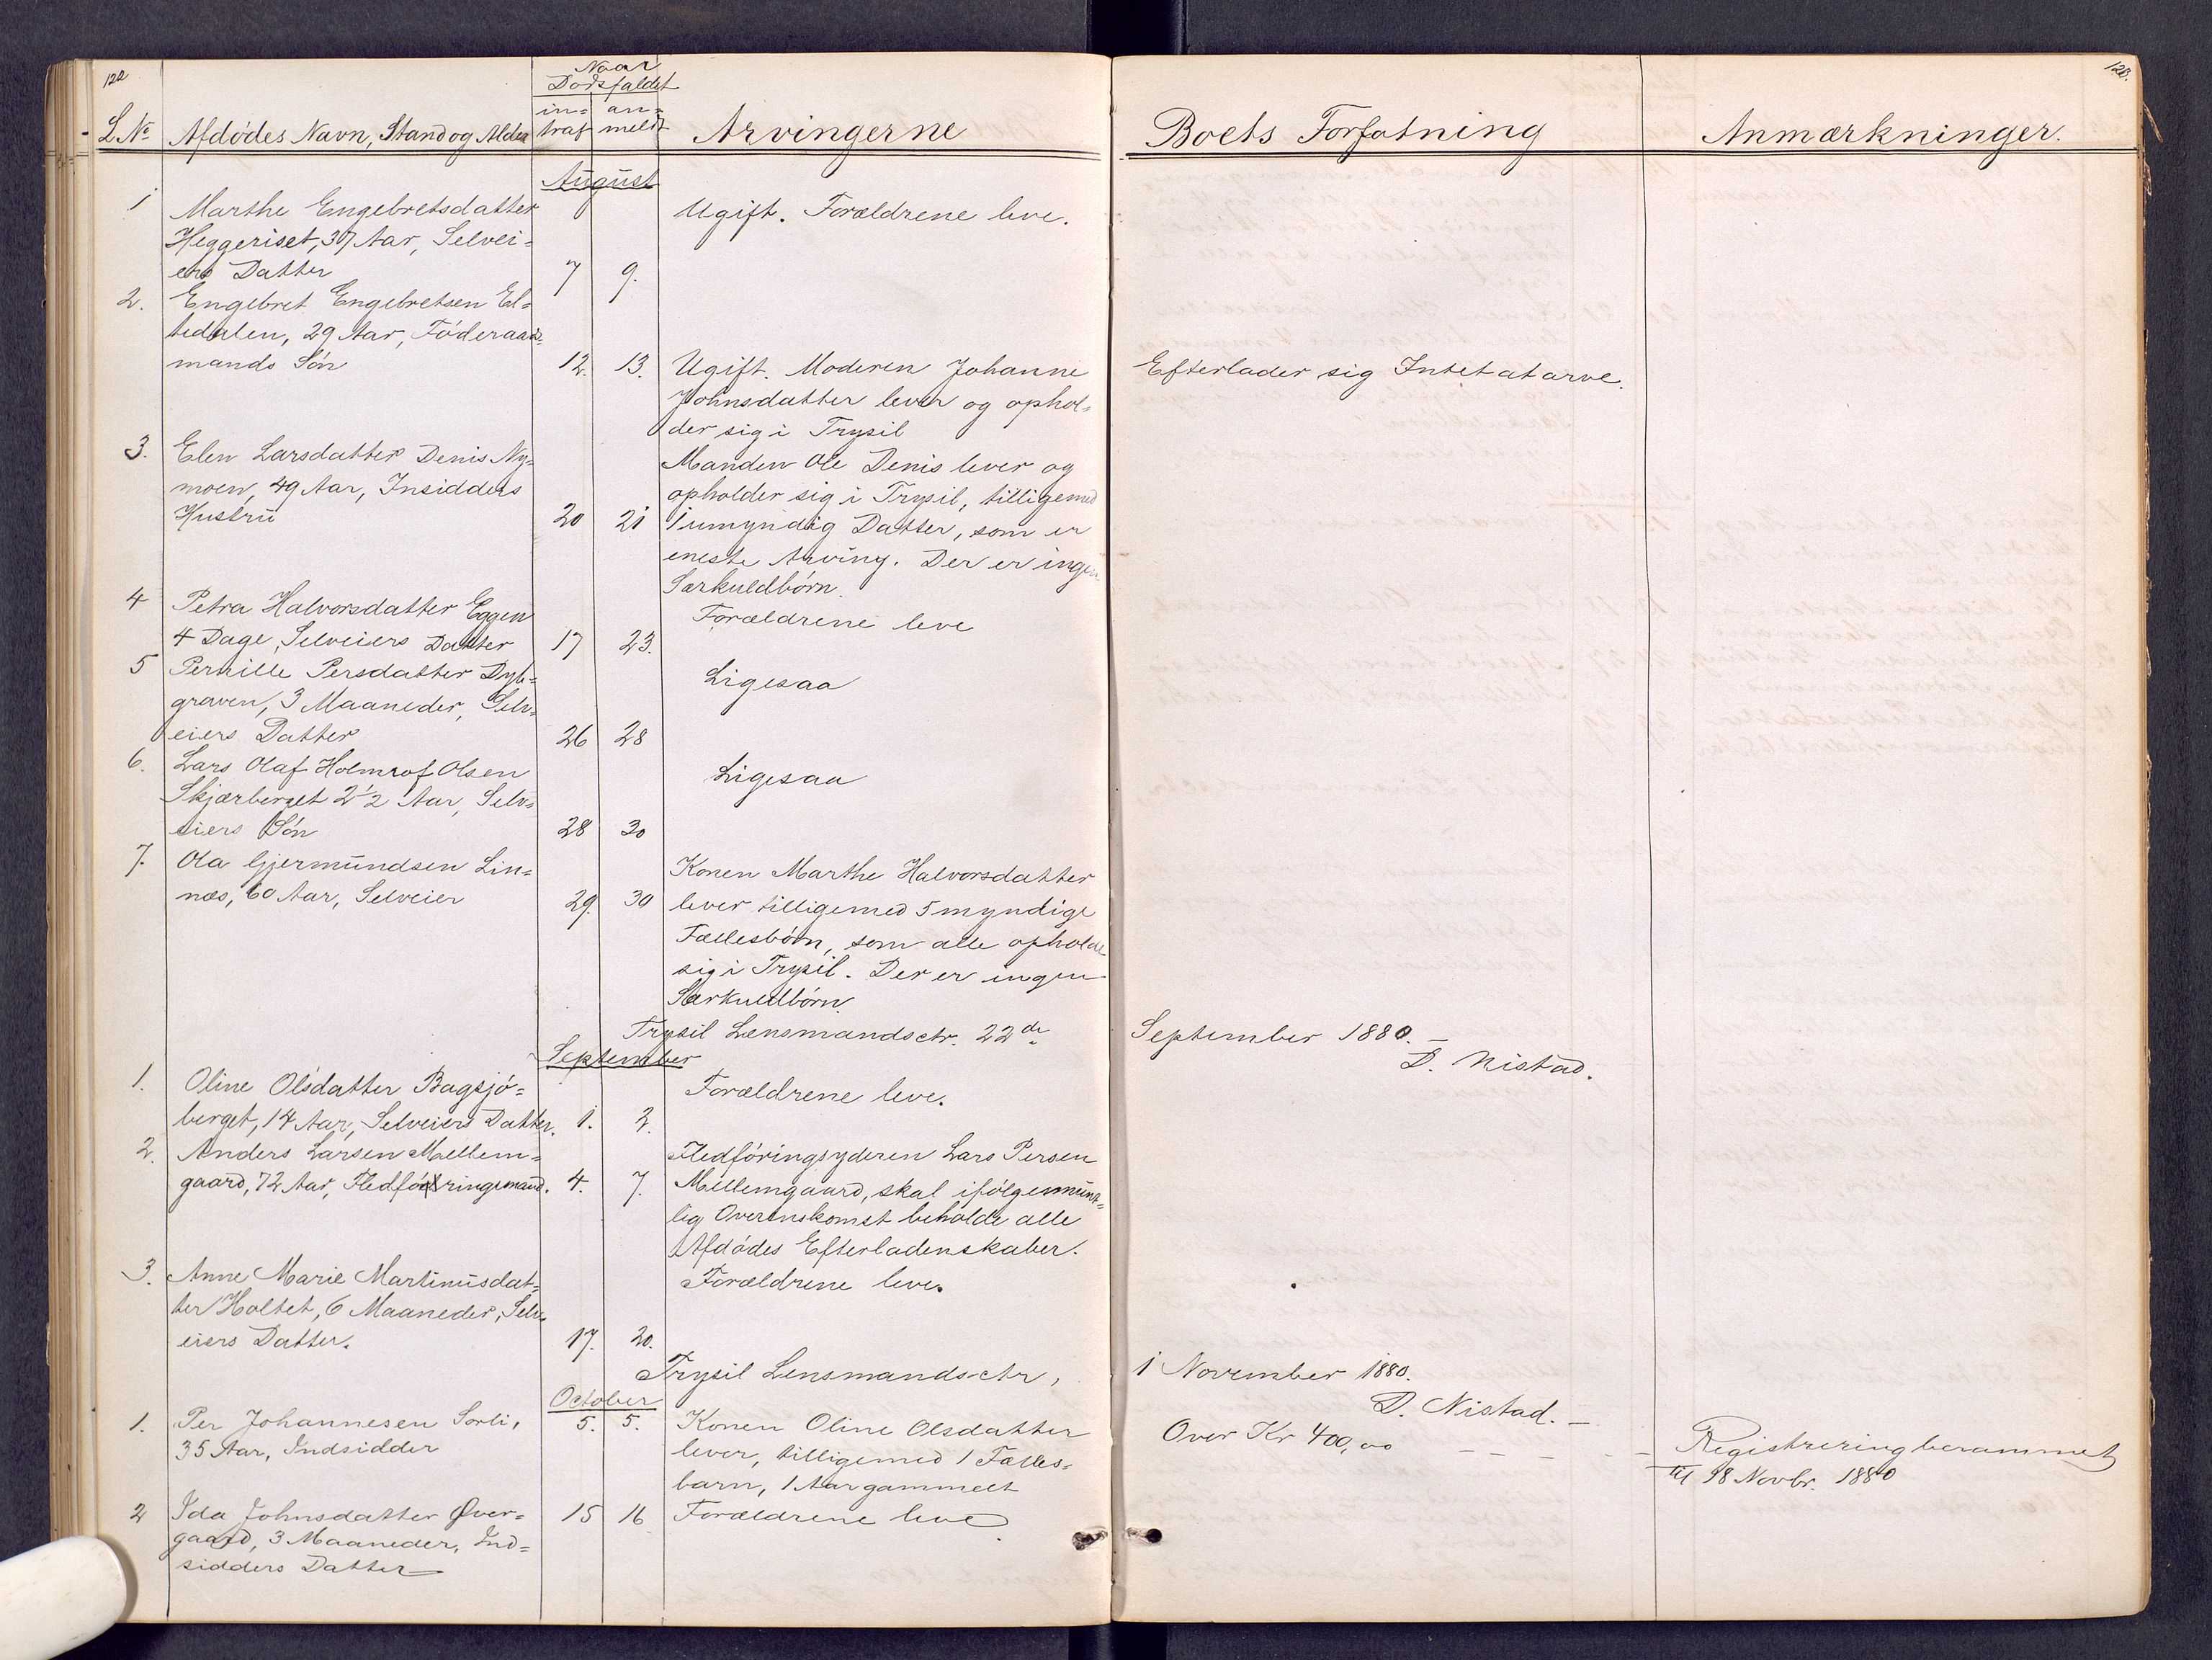 122
Naar
Dødsfaldet
in= an=
L.No Afdødes Navn, Stand og Alder traf meldt Arvingerne
August
1 Marthe Engebretsdatter
Heggeriset, 37 Aar, Selvei=
ers Datter 7 9.
Ugift. Forældrene leve.
2. Engebret Engebretsen El=
tedalen, 29 Aar, Föderaads=
mands Sön 12. 13.
Ugift. Moderen Johanne
Johnsdatter lever og ophol=
der sig i Trysil
3. Elen Larsdatter Denis Ny=
moen, 49 Aar, Insidders
Hustru 20 21
Manden Ole Denis lever og
opholder sig i Trysil, tilligemed
1 umyndig Datter, som er
eneste Arving. Der er ingen
Særkuldbörn.
4 Petra Halvorsdatter Eggen
4 Dage, Selveiers Datter 17 23.
Forældrene leve
5 Pernille Persdatter Dyb=
graven, 3 Maaneder, Selv=
eiers Datter 26 28
Ligesaa
6. Lars Olaf Holmrof Olsen
Skjærberget 2 1/2 Aar, Selv=
eiers Sön 28 30
Ligesaa
7. Ola Gjermundsen Lin=
næs, 60 Aar, Selveier 29. 30
Konen Marthe Halvorsdatter
lever tilligemed 5 myndige
Fællesbörn, som alle opholde
sig i Trysil. Der er ingen
Særkuldbörn.
Trysil Lensmandsctr. 22de
September
1. Oline Olsdatter Bagsjö=
berget, 14 Aar, Selveiers Datter. 1. 2.
Forældrene leve.
2. Anders Larsen Mellem=
gaard, 72 Aar, Fledföringsmand. 4. 7.
Fledföringsyderen Lars Persen
Mellemgaard, skal ifölge mundt=
lig Overenskomst beholde alle
Afdödes Efterladenskaber.
3. Anne Marie Martinusdat=
ter Holtet, 6 Maaneder, Selv=
eiers Datter. 17. 20.
Forældrene leve.
Trysil Lensmandsctr,
October
1. Per Johannesen Sorli,
35 Aar, Indsidder 5. 5.
Konen Oline Olsdatter
lever, tilligemed 1 Fælles=
barn, 1 Aar gammelt
2 Ida Johnsdatter Øver=
gaard, 3 Maaneder, Ind=
sidders Datter 15 16
Forældrene leve
123.
Boets Forfatning Anmærkninger.
Efterlader sig Intet at arve.
September 1880.
D. Nistad.
1 November 1880.
D. Nistad.
Over Kr 400,00
Registrering berammet
til 18 Novbr. 1880